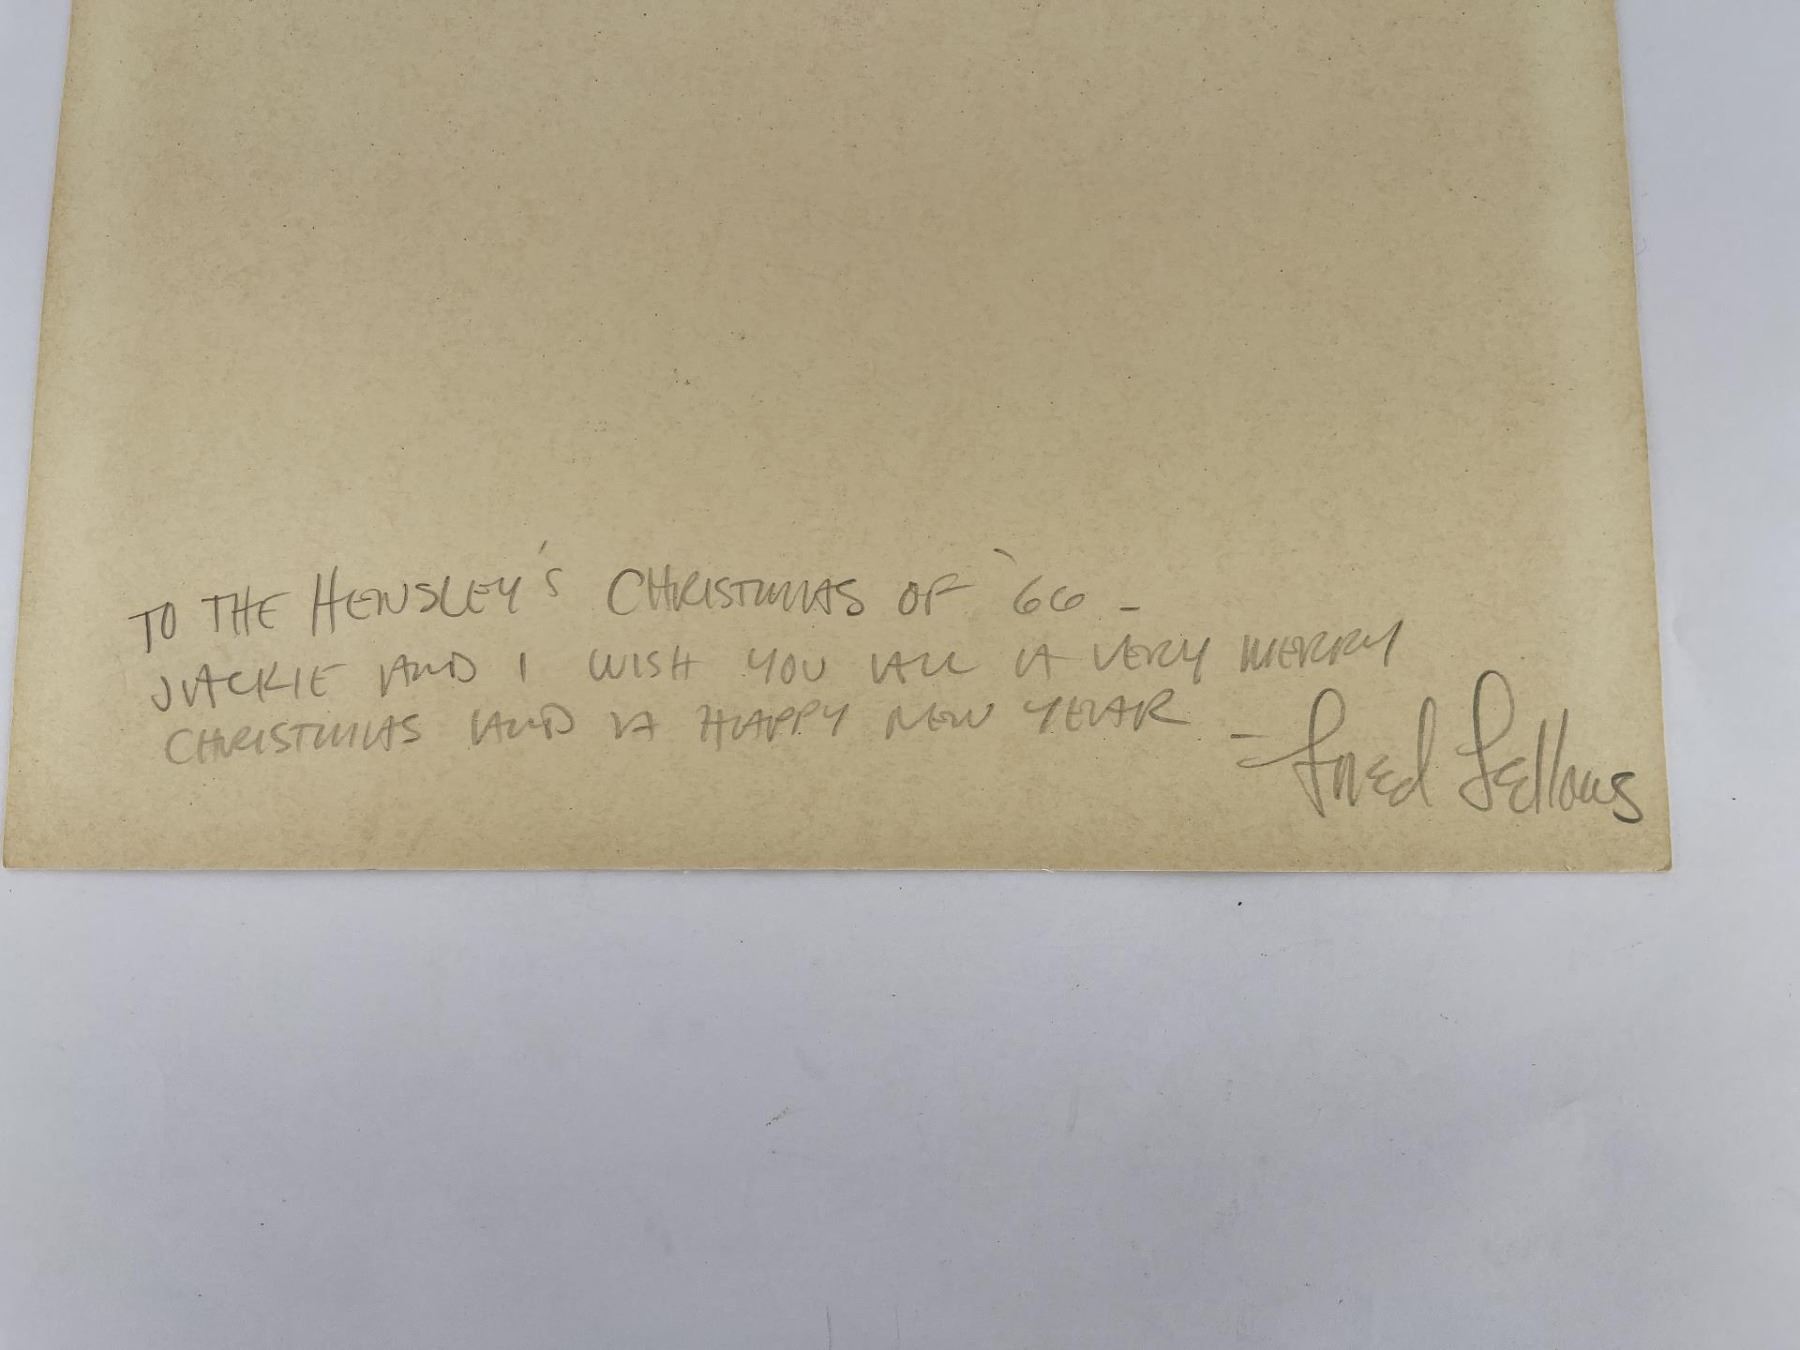 TO THE HENSLEY'S CHRISTMAS OF '66 -
JACKIE AND I WISH YOU ALL A VERY MERRY
CHRISTMAS AND A HAPPY NEW YEAR
= Fred Fellows